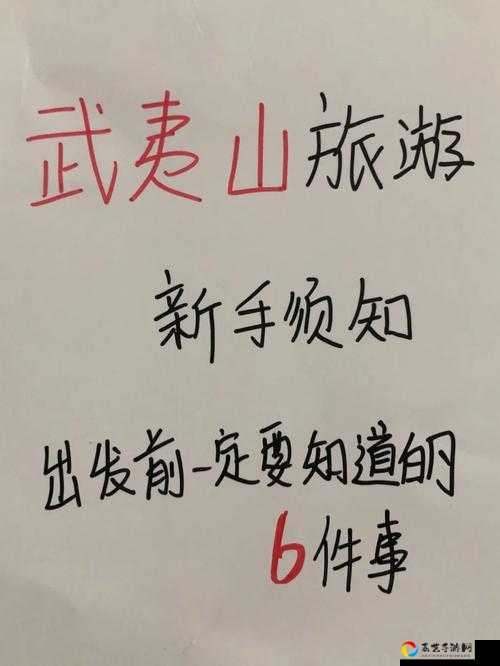 武夷山旅游
新手须知
出发前一定要知道的
6件事